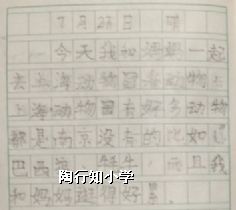 7月23日 晴
今天我和妈妈一起
去上海动物园看动物
上海动物园有好多动物
都是南京没有的比如
巴西 牛 而且我
和妈妈玩得好累
陶行知小学